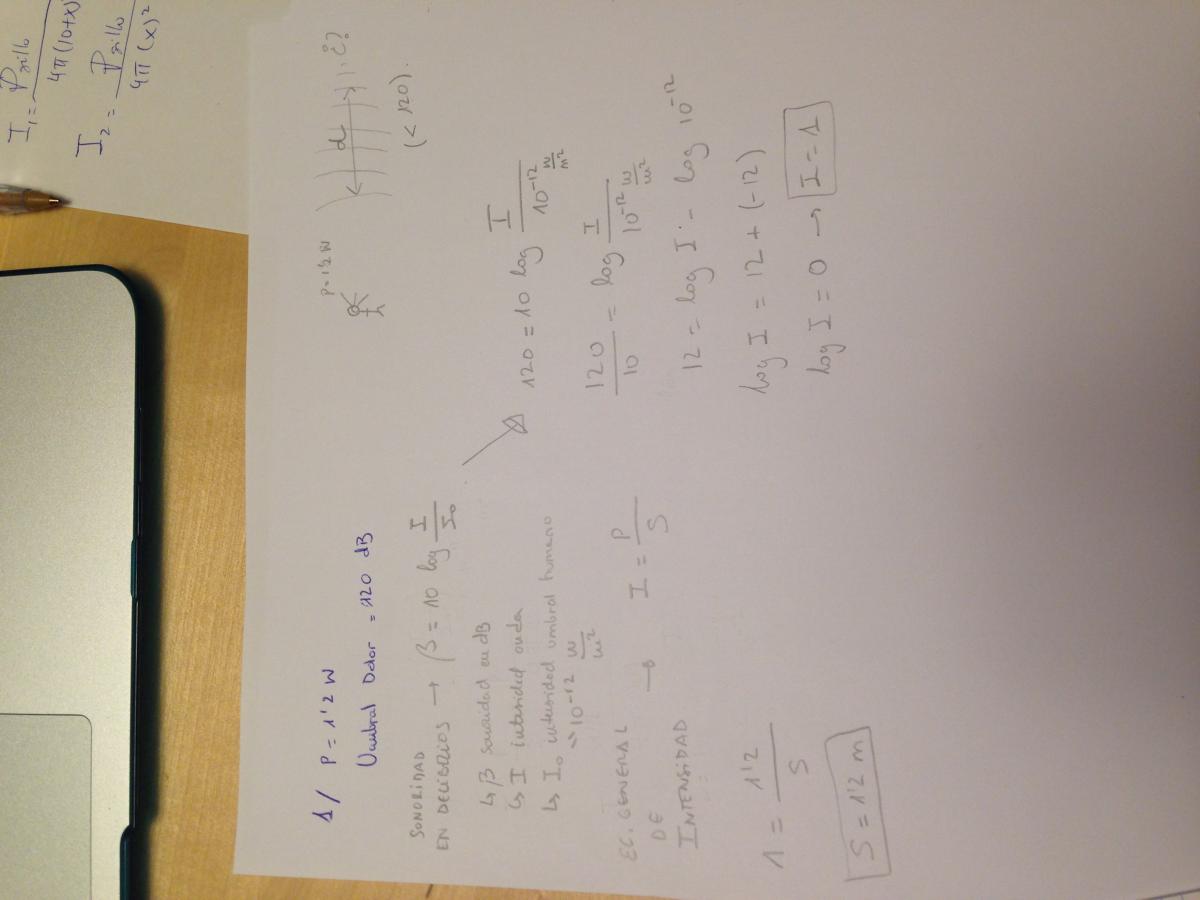 I₁ = P silb / 4π(10+x)
I₂ = P silb / 4π(x)²
1/ P = 1'2 W
Umbral Dolor = 120 dB
P = 1'2 W
d
i?
(< 120).
SONORIDAD
EN DECIBELIOS → β = 10 log I / I₀
↳ β sonoridad en dB
↳ I intensidad onda
↳ I₀ intensidad umbral humano
10⁻¹² W / m²
EC. GENERAL
DE → I = P / S
INTENSIDAD
1 = 1'2 / S
S = 1'2 m
120 = 10 log I / 10⁻¹² W / m²
120 / 10 = log I / 10⁻¹² W / m²
12 = log I - log 10⁻¹²
log I = 12 + (-12)
log I = 0 → I = 1